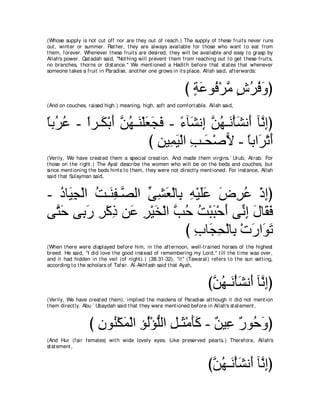 (Whose supply is not cut off nor are they out of reach.) The supply of these fruits never runs
out, winter or summer. Rather, they are always available for those who want to eat from
them, forever. Whenever these fruits are desired, they will be available and easy to grasp by
Allah's power. Qatadah said, "Nothing will prevent them from reaching out to get these fruits,
no branches, thorns or distance.'' We mentioned a Hadith before that states that whenever
someone takes a fruit in Paradise, another one grows in its place. Allah said, afterwards:
(وَفُرُشٍ مَّرْفُوعَةٍ )
(And on couches, raised high.) meaning, high, soft and comfortable. Allah said,
(إِنَّآ أَنشَأْنَـهُنَّ إِنشَآءً - فَجَعَلْنَـهُنَّ أَبْكَـراً - عُرُباً
أَتْرَاباً - لاًّصْحَـبِ الْيَمِينِ )
(Verily, We have created them a special creation. And made them virgins `Urub, Atrab. For
those on the right.) The Ayat describe the women who will be on the beds and couches, but
since mentioning the beds hints to them, they were not directly mentioned. For instance, Allah
said that Sulayman said,
(إِذْ عُرِضَ عَلَيْهِ بِالْعَشِىِّ الصَّـفِنَـتُ الْجِيَادُ -
فَقَالَ إِنِّى أَحْبَبْتُ حُبَّ الْخَيْرِ عَن ذِكْرِ رَبِى حَتَّى
تَوَارَتْ بِالْحِجَابِ )
(When there were displayed before him, in the afternoon, well-trained horses of the highest
breed. He said, "I did love the good instead of remembering my Lord,'' till the time was over,
and it had hidden in the veil (of night).) (38:31-32), "it'' (Tawarat) refers to the sun setting,
according to the scholars of Tafsir. Al-Akhfash said that Ayah,
(إِنَّآ أَنشَأْنَـهُنَّ)
(Verily, We have created them), implied the maidens of Paradise although it did not mention
them directly. Abu `Ubaydah said that they were mentioned before in Allah's statement,
(وَحُورٌ عِينٌ - كَأَمْثَـلِ اللُّؤْلُؤِ الْمَكْنُونِ )
(And Hur (fair females) with wide lovely eyes. Like preserved pearls.) Therefore, Allah's
statement,
(إِنَّآ أَنشَأْنَـهُنَّ)